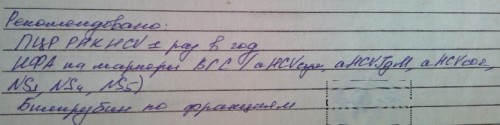 Рекомендовано:
ПЦР РНК HCV 1 раз в год
ИФА на маркеры ВГС (aHCVсум, aHCV IgM, aHCVcor,
NS3, NS4, NS5)
Билирубин по фракциям